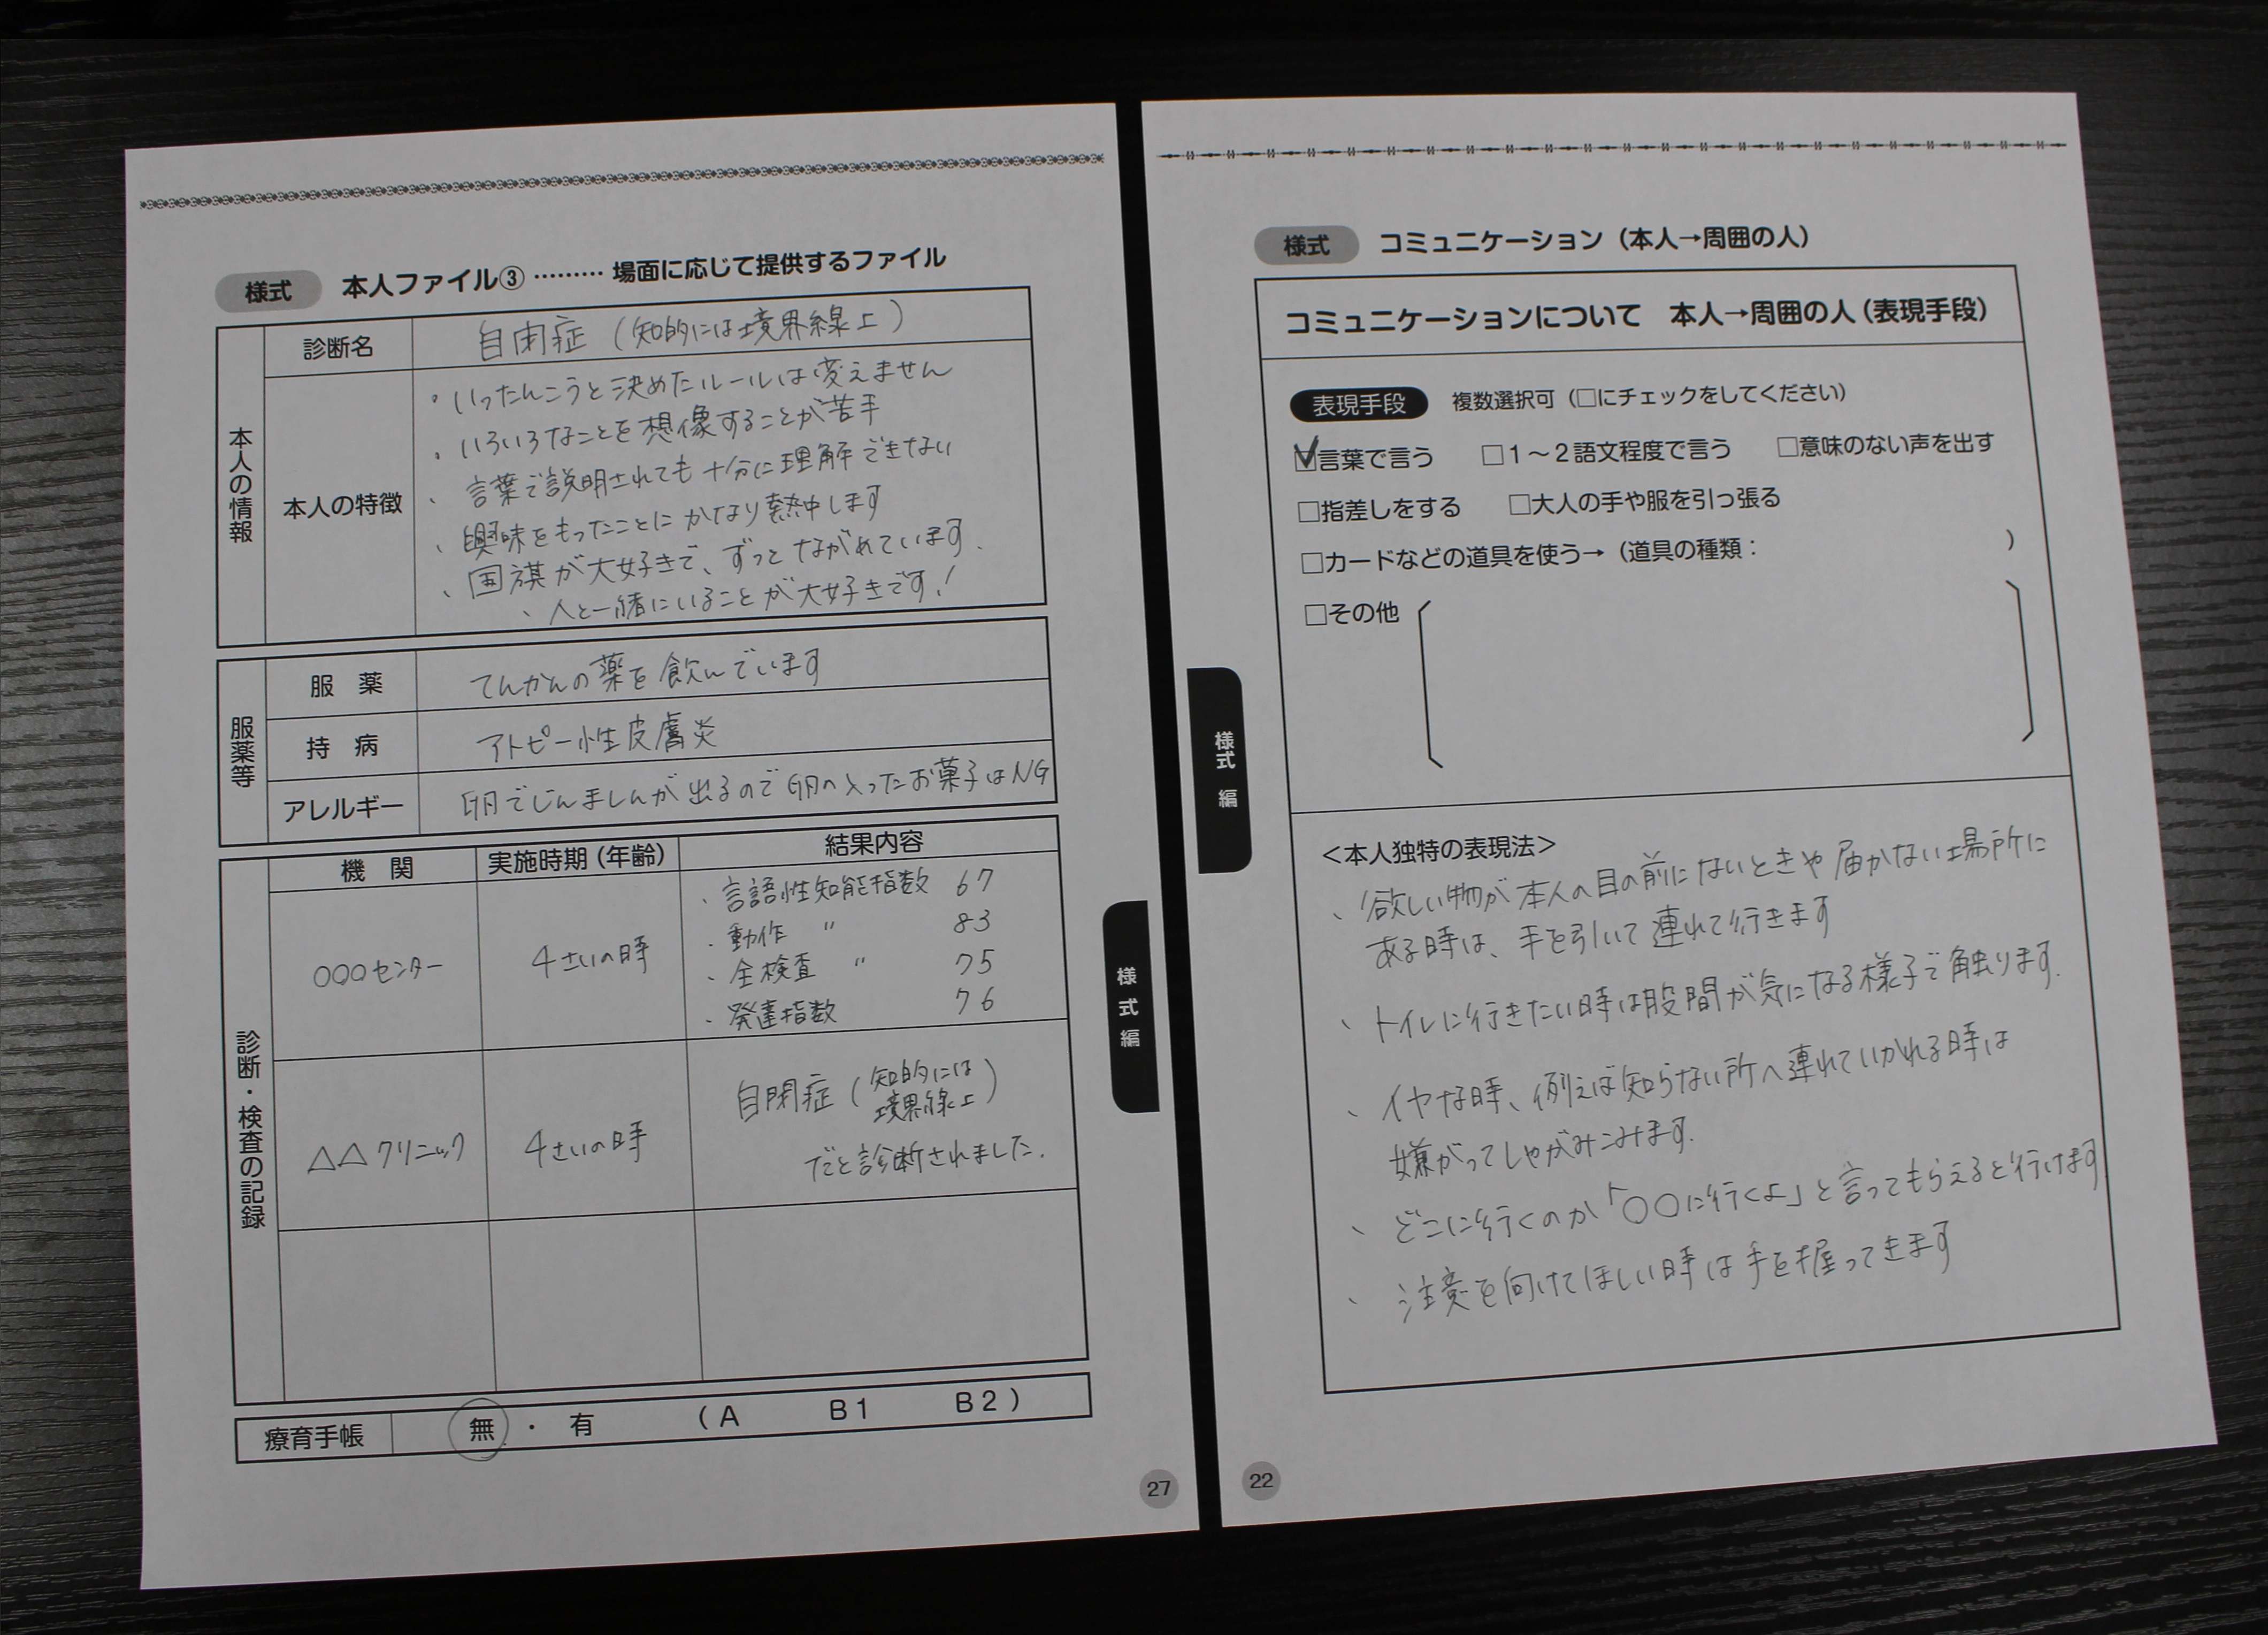 様式 本人ファイル③ ……… 場面に応じて提供するファイル
本人の情報
診断名 自閉症（知的には境界線上）
本人の特徴
・いったんこうと決めたルールは変えません
・いろいろなことを想像することが苦手
・言葉で説明されても十分に理解できない
・興味をもったことにかなり熱中します
・国旗が大好きで、ずっとながめています.
・人と一緒にいることが大好きです！
服薬等
服 薬 てんかんの薬を飲んでいます
持 病 アトピー性皮膚炎
アレルギー 卵でじんましんが出るので卵の入ったお菓子はNG
診断・検査の記録
機 関 実施時期（年齢） 結果内容
○○○センター 4さいの時
・言語性知能指数 67
・動作 〃 83
・全検査 〃 75
・発達指数 76
△△クリニック 4さいの時
自閉症（知的には
境界線上）
だと診断されました.
療育手帳 無 ・ 有 （A B1 B2）
様式編
27
様式 コミュニケーション（本人→周囲の人）
コミュニケーションについて 本人→周囲の人（表現手段）
表現手段 複数選択可（□にチェックをしてください）
☑言葉で言う □1～2語文程度で言う □意味のない声を出す
□指差しをする □大人の手や服を引っ張る
□カードなどの道具を使う→（道具の種類： ）
□その他
様式編
＜本人独特の表現法＞
、欲しい物が本人の目の前にないときや届かない場所に
ある時は、手を引いて連れて行きます
、トイレに行きたい時は股間が気になる様子で触ります.
、イヤな時、例えば知らない所へ連れていかれる時は
嫌がってしゃがみこみます.
、どこに行くのか「○○に行くよ」と言ってもらえると行けます
、注意を向けてほしい時は手を握ってきます
22